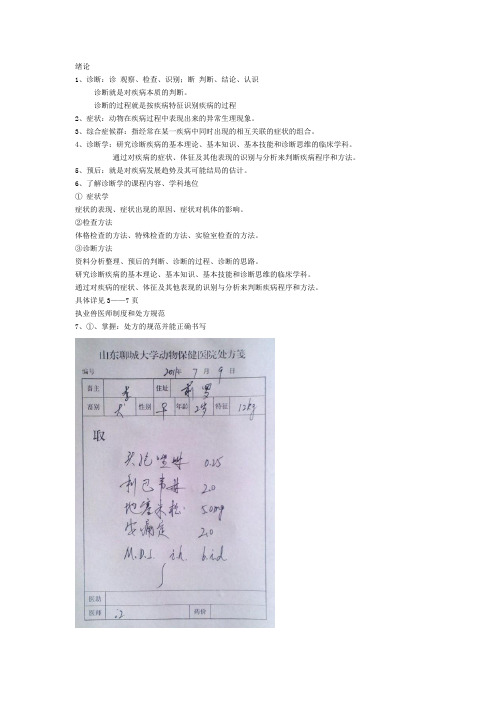 绪论
1、诊断：诊 观察、检查、识别；断 判断、结论、认识
诊断就是对疾病本质的判断。
诊断的过程就是按疾病特征识别疾病的过程
2、症状：动物在疾病过程中表现出来的异常生理现象。
3、综合症候群：指经常在某一疾病中同时出现的相互关联的症状的组合。
4、诊断学：研究诊断疾病的基本理论、基本知识、基本技能和诊断思维的临床学科。
通过对疾病的症状、体征及其他表现的识别与分析来判断疾病程序和方法。
5、预后：就是对疾病发展趋势及其可能结局的估计。
6、了解诊断学的课程内容、学科地位
① 症状学
症状的表现、症状出现的原因、症状对机体的影响。
②检查方法
体格检查的方法、特殊检查的方法、实验室检查的方法。
③诊断方法
资料分析整理、预后的判断、诊断的过程、诊断的思路。
研究诊断疾病的基本理论、基本知识、基本技能和诊断思维的临床学科。
通过对疾病的症状、体征及其他表现的识别与分析来判断疾病程序和方法。
具体详见 3——7 页
执业兽医师制度和处方规范
7、①、掌握：处方的规范并能正确书写
山东聊城大学动物保健医院处方笺
编号 2011年 7 月 9 日
畜主 李 住址
畜别 犬 性别 年龄 2岁 特征 12kg
取
头孢噻呋 0.25
利巴韦林 2.0
地塞米松 5.0mg
安痛定 2.0
M.D.S. i.h. b.i.d
医助
医师 药价